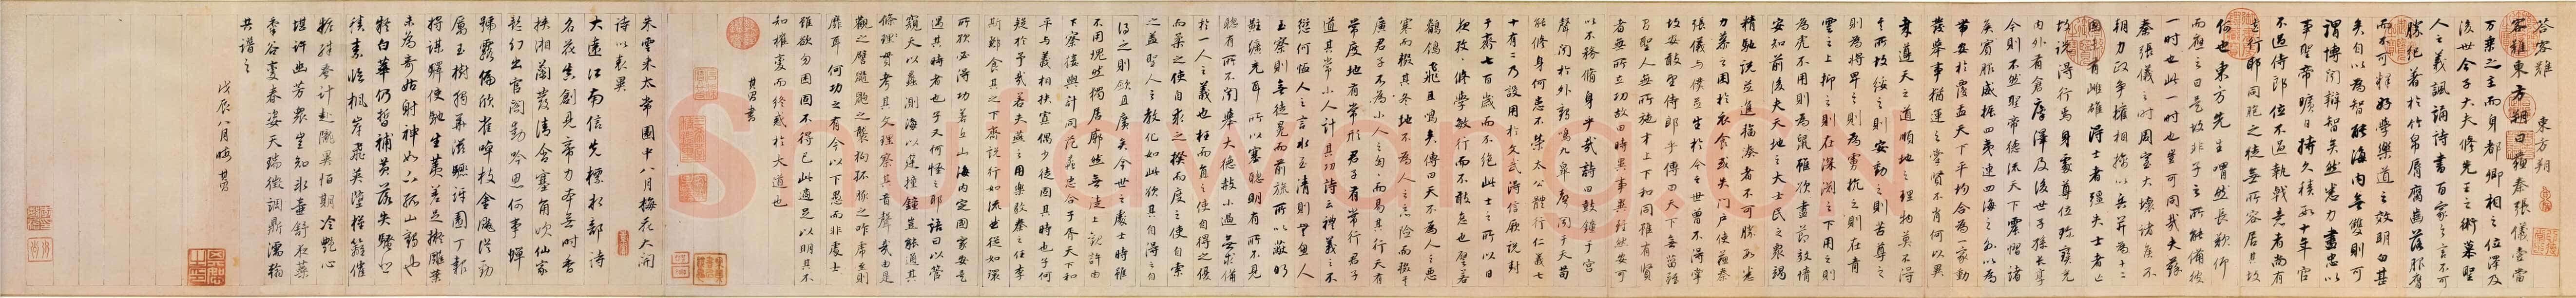 答客難　東方朔
客難東方朔曰蘇秦張儀壹當
万乘之主而身都卿相之位澤及
後世今子大夫修先王之術慕聖
人之義諷誦詩書百家之言不可
勝紀著於竹帛脣腐齒落服膺
而不可釋好學樂道之效明白甚
矣自以為智能海内無雙則可
謂博聞辯智矣然悉力盡忠以
事聖帝曠日持久積數十年官
不過侍郎位不過執戟意者尚有
遺行耶同胞之徒無所容居其故
何也東方先生喟然長歎仰
而應之曰是故非子之所能備彼
一時也此一時也豈可同哉夫蘇
秦張儀之時周室大壞諸侯不
朝力政爭權相擒以兵并為十二
國未有雌雄得士者彊失士者亡
故說得行焉身處尊位珍寶充
内外有倉廩澤及後世子孫長享
今則不然聖帝德流天下震慴諸
侯賓服威振四夷連四海之外以為
帶安於覆盂天下平均合為一家動
發舉事猶運之掌賢不肖何以異
哉遵天之道順地之理物莫不得
其所故綏之則安動之則苦尊之
則為將卑之則為虜抗之則在青
雲之上抑之則在深淵之下用之則
為虎不用則為鼠雖欲盡節效情
安知前後夫天地之大士民之衆竭
精馳說並進輻湊者不可勝數悉
力慕之困於衣食或失門戶使蘇秦
張儀與僕並生於今之世曾不得掌
故安敢望侍郎乎傳曰天下無菑雖
有聖人無所施才上下和同雖有賢
者無所立功故曰時異事異雖然安可
以不務脩身乎哉詩曰鼓鐘于宮
聲聞於外鶴鳴九皋聲聞于天苟
能修身何患不榮太公體行仁義七
十有二乃設用於文武得信厥說封
于齊七百歲而不絕此士之所以日
夜孜孜修學敏行而不敢怠也譬若
鶺鴒飛且鳴矣傳曰天不為人之惡
寒而輟其冬地不為人之惡險而輟其
廣君子不為小人之匈匈而易其行天有
常度地有常形君子有常行君子
道其常小人計其功詩云禮義之不
愆何恤人之言水至清則無魚人
至察則無徒冕而前旒所以蔽明
黈纊充耳所以塞聰明有所不見
聰有所不聞舉大德赦小過無求備
於一人之義也枉而直之使自得之優
而柔之使自求之揆而度之使自索
之蓋聖人之教化如此欲其自得之自
得之則敏且廣矣今世之處士時雖
不用塊然獨居廓然無徒上觀許由
下察接輿計同范蠡忠合子胥天下和
平與義相扶寡偶少徒固其時也子何
疑於予哉若夫燕之用樂毅秦之任李
斯酈食其之下齊說行如流曲從如環
所欲必得功若丘山海内定國家安是
遇其時者也子又何怪之耶語曰以管
窺天以蠡測海以筳撞鐘豈能通其
條理考其文理發其音聲哉由是
觀之譬猶鼱鼩之襲狗豚之咋虎至則
靡耳何功之有今以下愚而非處士
雖欲勿困固不得已此適足以明其不
知權變而終惑於大道也
其昌書
朱雲來太常園中八月梅花大開
詩以表異
大遠江南信先標水部詩
名花生創見帝力本無時香
挾湘蘭發清含塞角吹仙家
能幻出官閣動吟思何事蟬
猶露偏欣雀啅枝金飈從動
屬玉樹獨葳滋興許園丁報
將謀驛使馳生荑差足擬雕葉
未為奇姑射神如在孤山鶴也
疑白華仍晳補黃落失騷
續素臨楓岸飛英墮槿籬催
粧殊吝計赴隴異怕期冷艷心
堪許幽芳衆豈知冰壺舒在藥
黍谷變春姿天瑞徵調鼎濡翰
共譜之
戊辰八月晦其昌
ShuHuaWang.CN